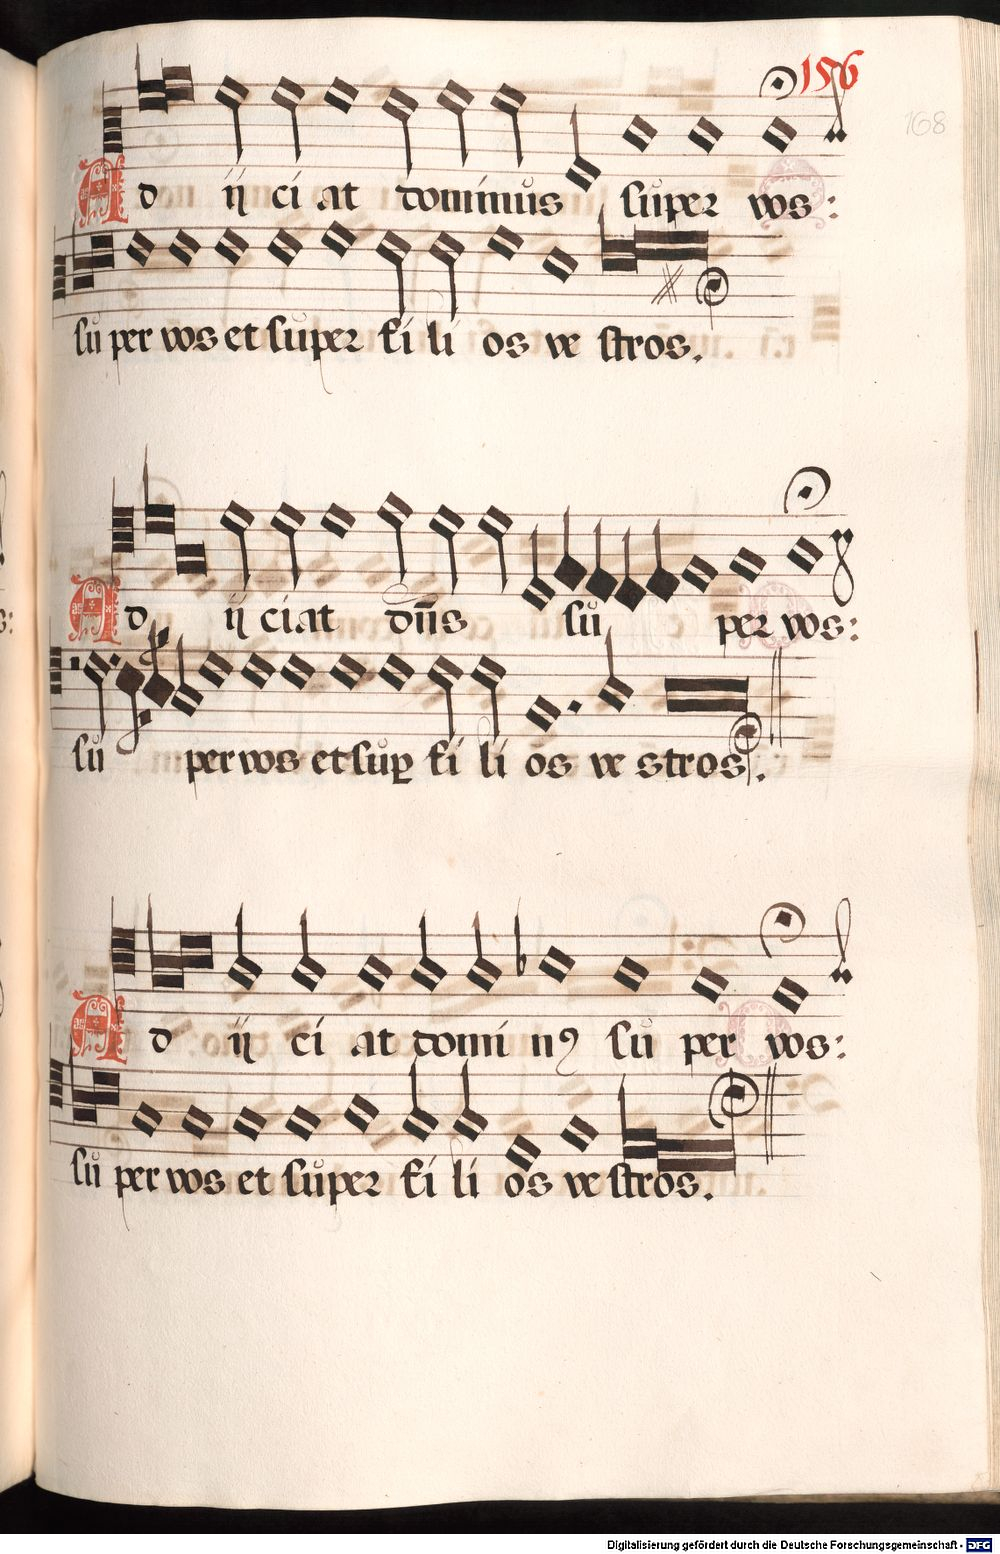 156
168
Ad ijciat dominus super vos:
super vos et super fi li os ve stros.
Ad ijciat dn̄s sů per vos:
sů per vos et sůp̱ fi li os ve stros.
Ad ijciat dominꝰ sů per vos:
sů per vos et sůper fi li os ve stros.
Digitalisierung gefördert durch die Deutsche Forschungsgemeinschaft - DFG